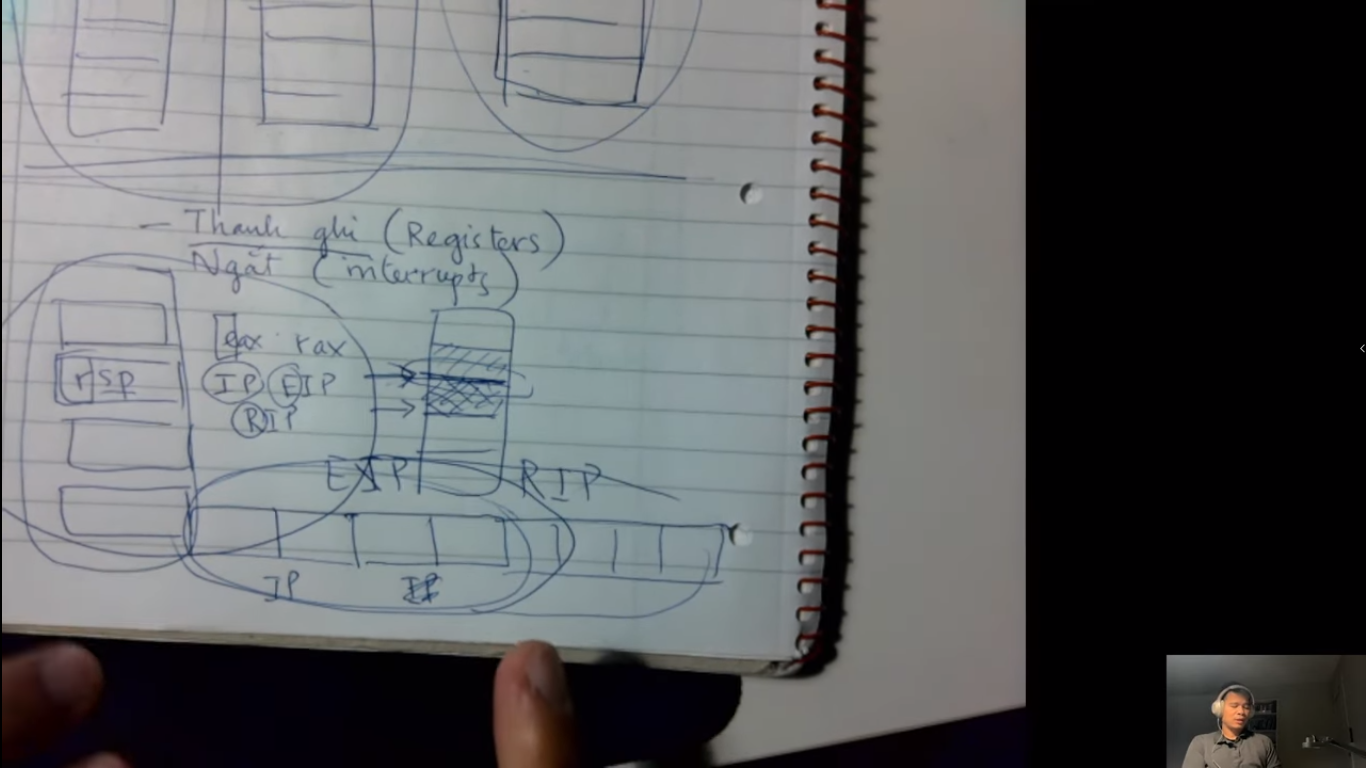 — Thanh ghi (Registers)
Ngắt (interrupts)
eax rax
rsp IP EIP
RIP
EIP RIP
IP